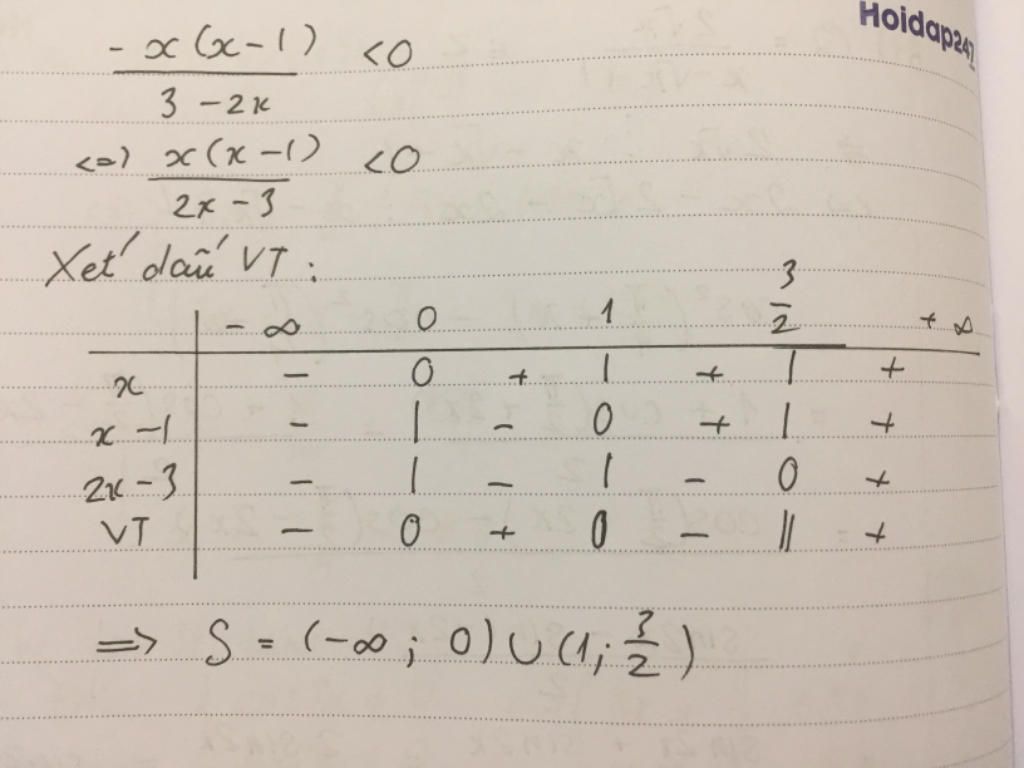 Hoidap247
- x(x-1) / 3 - 2x < 0
<=> x(x-1) / 2x - 3 < 0
Xét dấu VT :
- ∞ 0 1 3/2 + ∞
x - 0 + | + | +
x - 1 - | - 0 + | +
2x - 3 - | - | - 0 +
VT - 0 + 0 - || +
=> S = (-∞ ; 0) ∪ (1; 3/2)